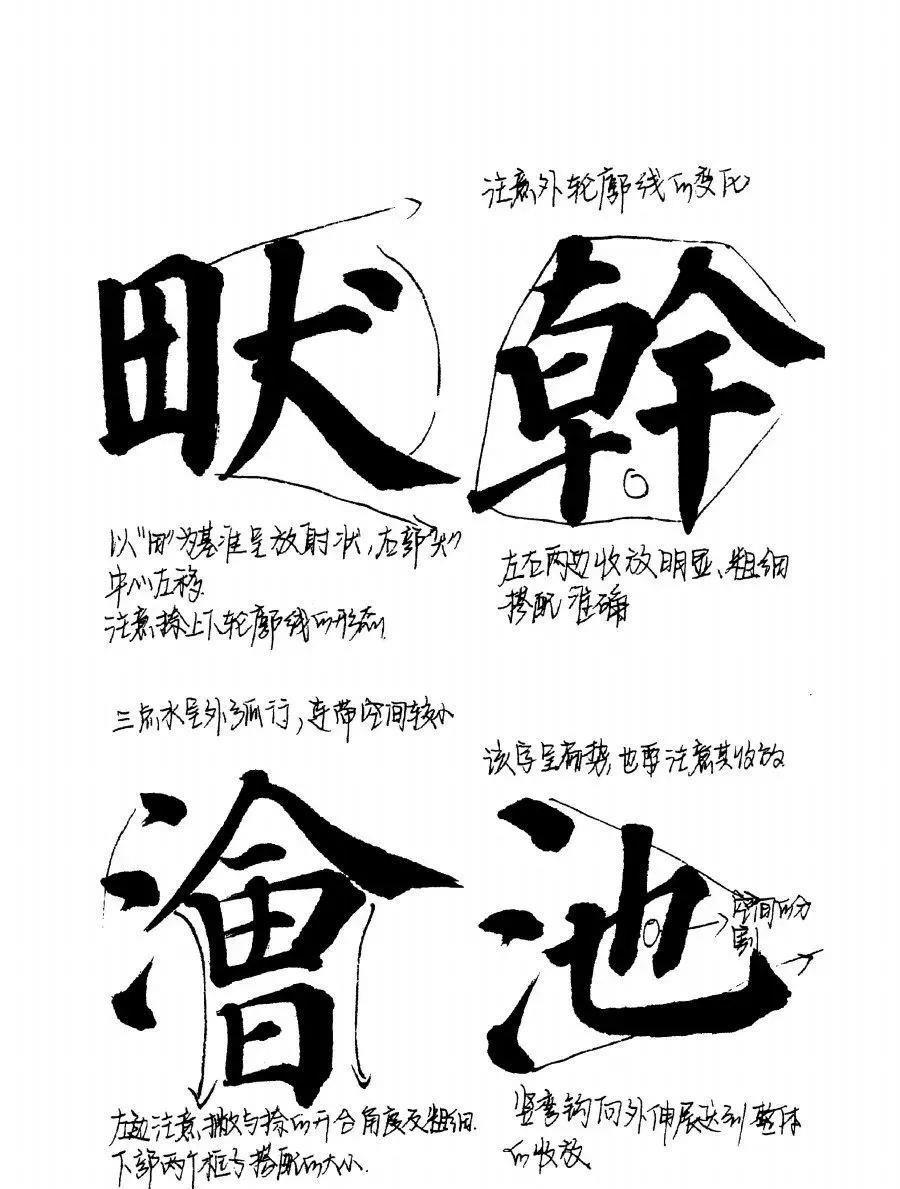 注意外轮廓线的变化
畎幹
以"田"为基准呈放射状,右部"犬"
中心左移.
注意捺上下轮廓线的形态.
左右两边收放明显、粗细
搭配准确
三点水呈外弧行,连带空间较小
该字呈扇势,也要注意其收放
澮池
空间的分
割
左边注意撇与捺的开合角度及粗细.
下部两个框子搭配的大小.
竖弯钩向外伸展达到整体
的收放